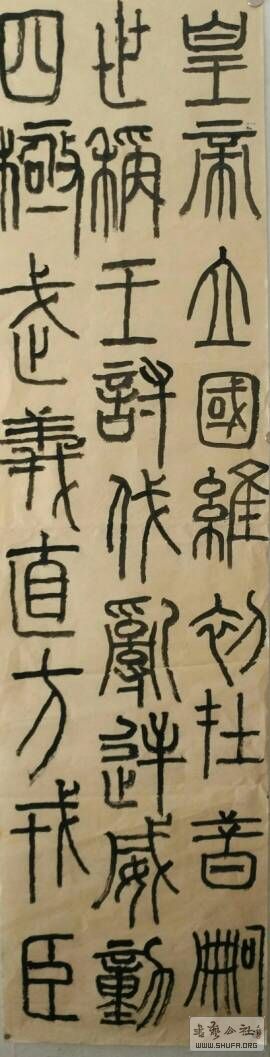 皇帝立國維初在昔嗣
世稱王討伐亂逆威動
四極武義直方戎臣
书艺公社
WWW.SHUFA.ORG